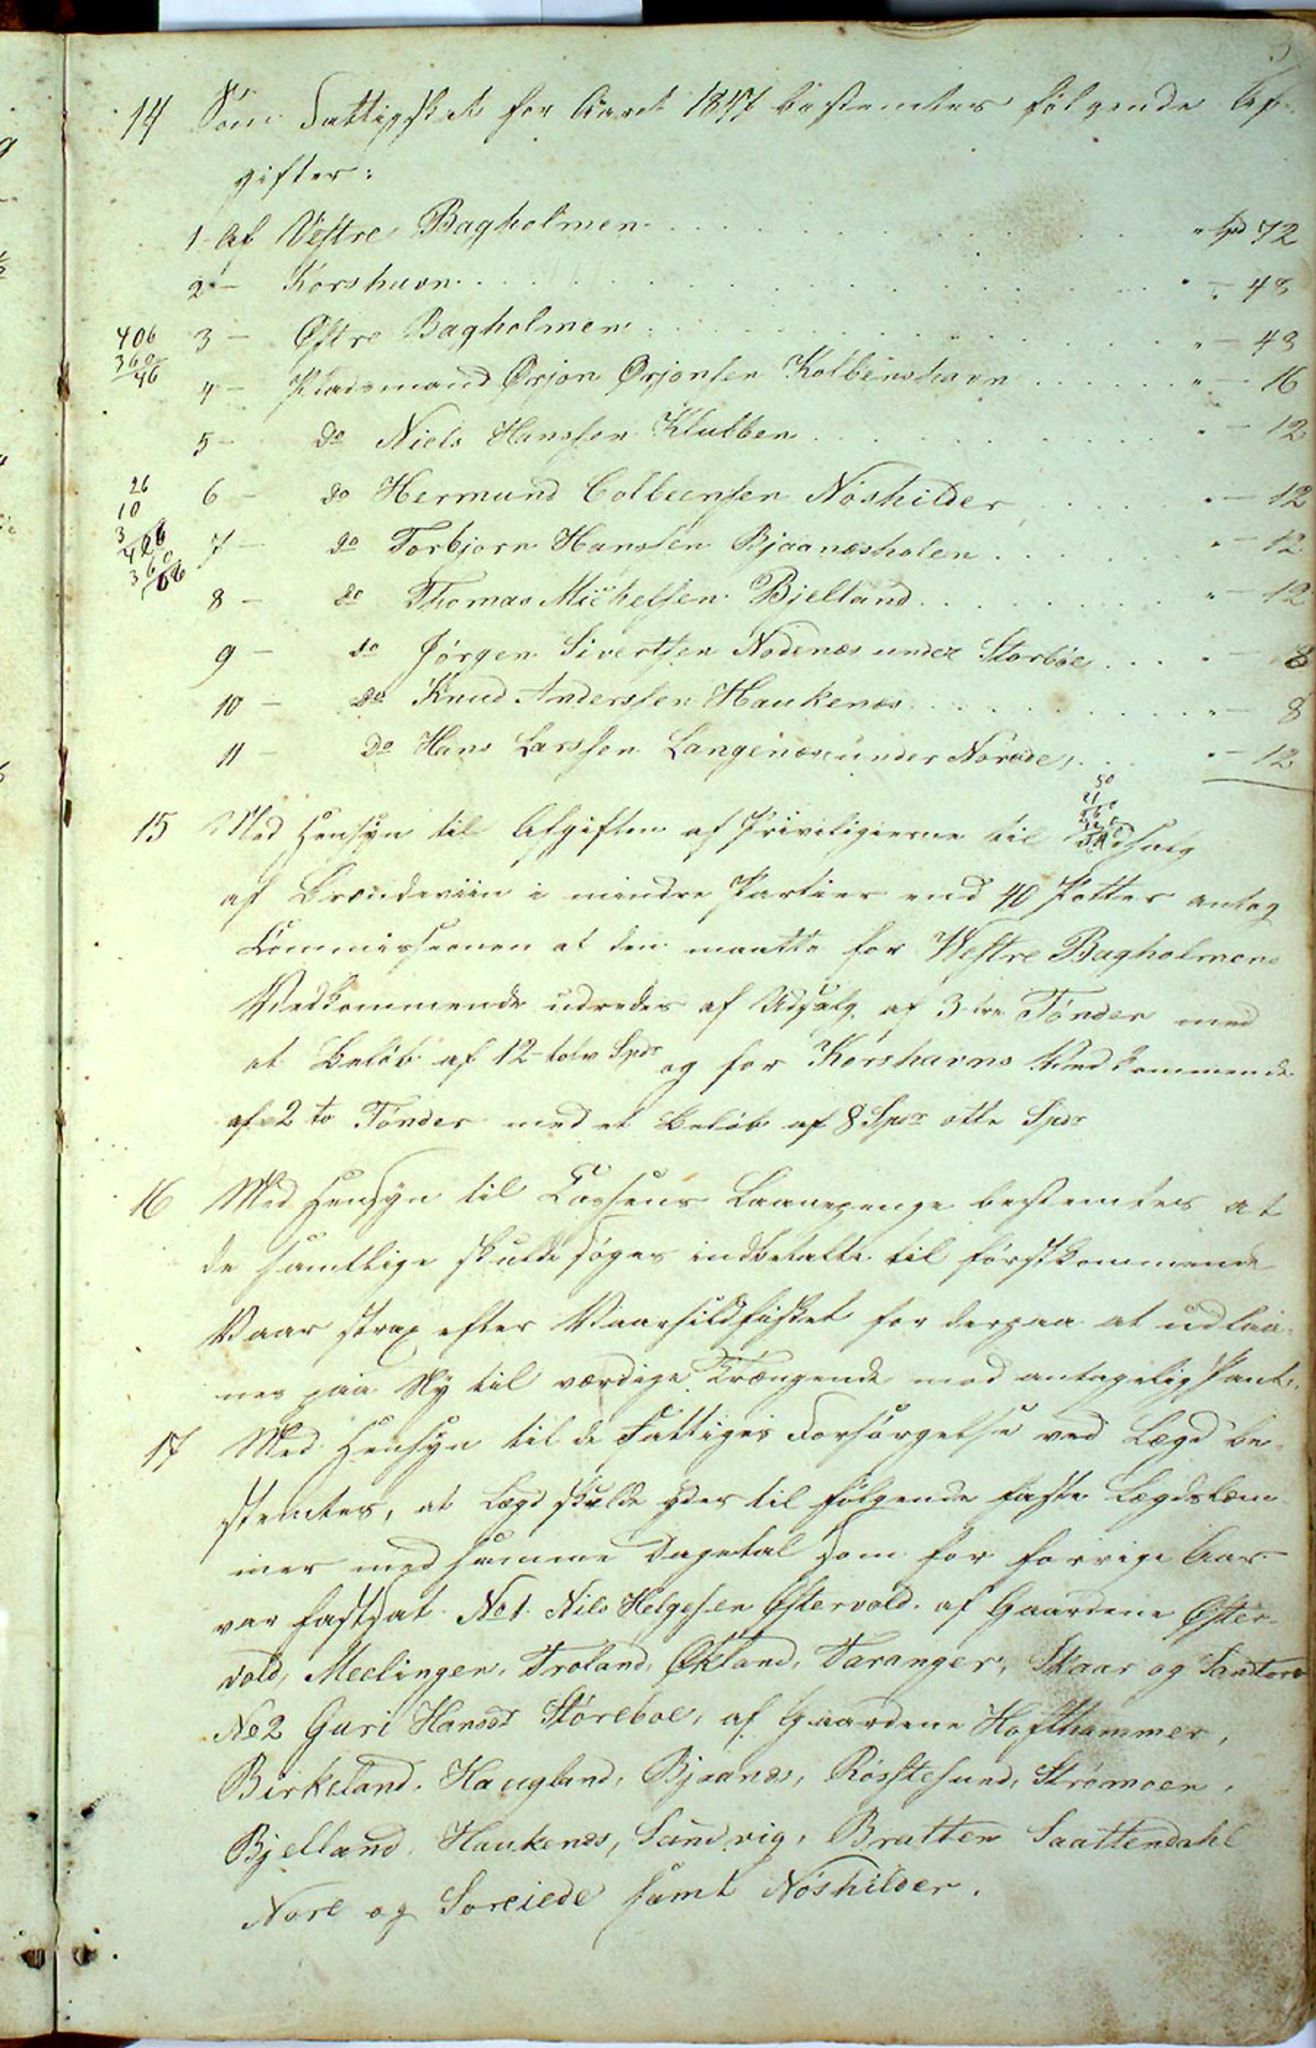 14 Som Fattigskat for Aaret 1847 bestemtes følgende Af-
gifter:
1 Af Vestre Bagholmen . . . . " Spd 72
2 - Korshavn . . . . " - 48
3 - Østre Bagholmen . . . . " - 48
4 - Pladsmand Ørjan Ørjansen Kolbenshavn . . . . " - 16
5 - do Niels Hanssen Klubben . . . . " - 12
6 - do Hermund Colbeensen Nøshilder . . . . " - 12
7 - do Torbjørn Hanssen Bjaanæsholen . . . . " - 12
8 - do Thomas Michelsen Bjelland . . . . " - 12
9 - do Jørgen Sivertsen Nodenæs under Storbøe . . . . " - 8
10 - do Knud Anderssen Haukenæs . . . . " - 8
11 - do Hans Larssen Langenæs under Norede, . . . . " - 12
406
360
46
26
10
3
406
360
15 Med Hensyn til Afgiften af Priviligierne til Udsalg
af Brændeviin i mindre Partier end 40 Potter antog
Commissionen at den maatte for Westre Bagholmens
Vedkommende udredes af Udsalg af 3-tre Tønder med
et Beløb af 12-tolv Spdr og for Korshavns Vedkommende
af 2 to Tønder med et Beløb af 8 Spdr otte Spdr
16 Med Hensyn til Cassens Laanepenge bestemtes at
de samtlige skulde søges indbetalte til førstkommende
Vaar strax efter Vaarsildfisket for derpaa at udlaa-
nes paa Ny til værdige Trængende mod antagelig Pant.
17 Med Hensyn til de Fattiges Forsørgelse ved Lægd be-
stemtes, at Lægd skulde ydes til følgende faste Lægdslem-
mer med samme Dagetal som for forrige Aar
var fastsat. No 1. Nils Helgesen Østervold af Gaardene Øster-
vold, Meelingen, Troland, Økland, Taranger, Skaar og Sandtorv
No 2 Guri Hansdr Storeboe, af Gaardene Hofthammer,
Birkeland, Haugland, Bjaanæs, Røsstesund, Strømoen,
Bjelland, Haukenæs, Sandvig, Bratten Saattendahl
Nore og Soreiede samt Nøshilder.